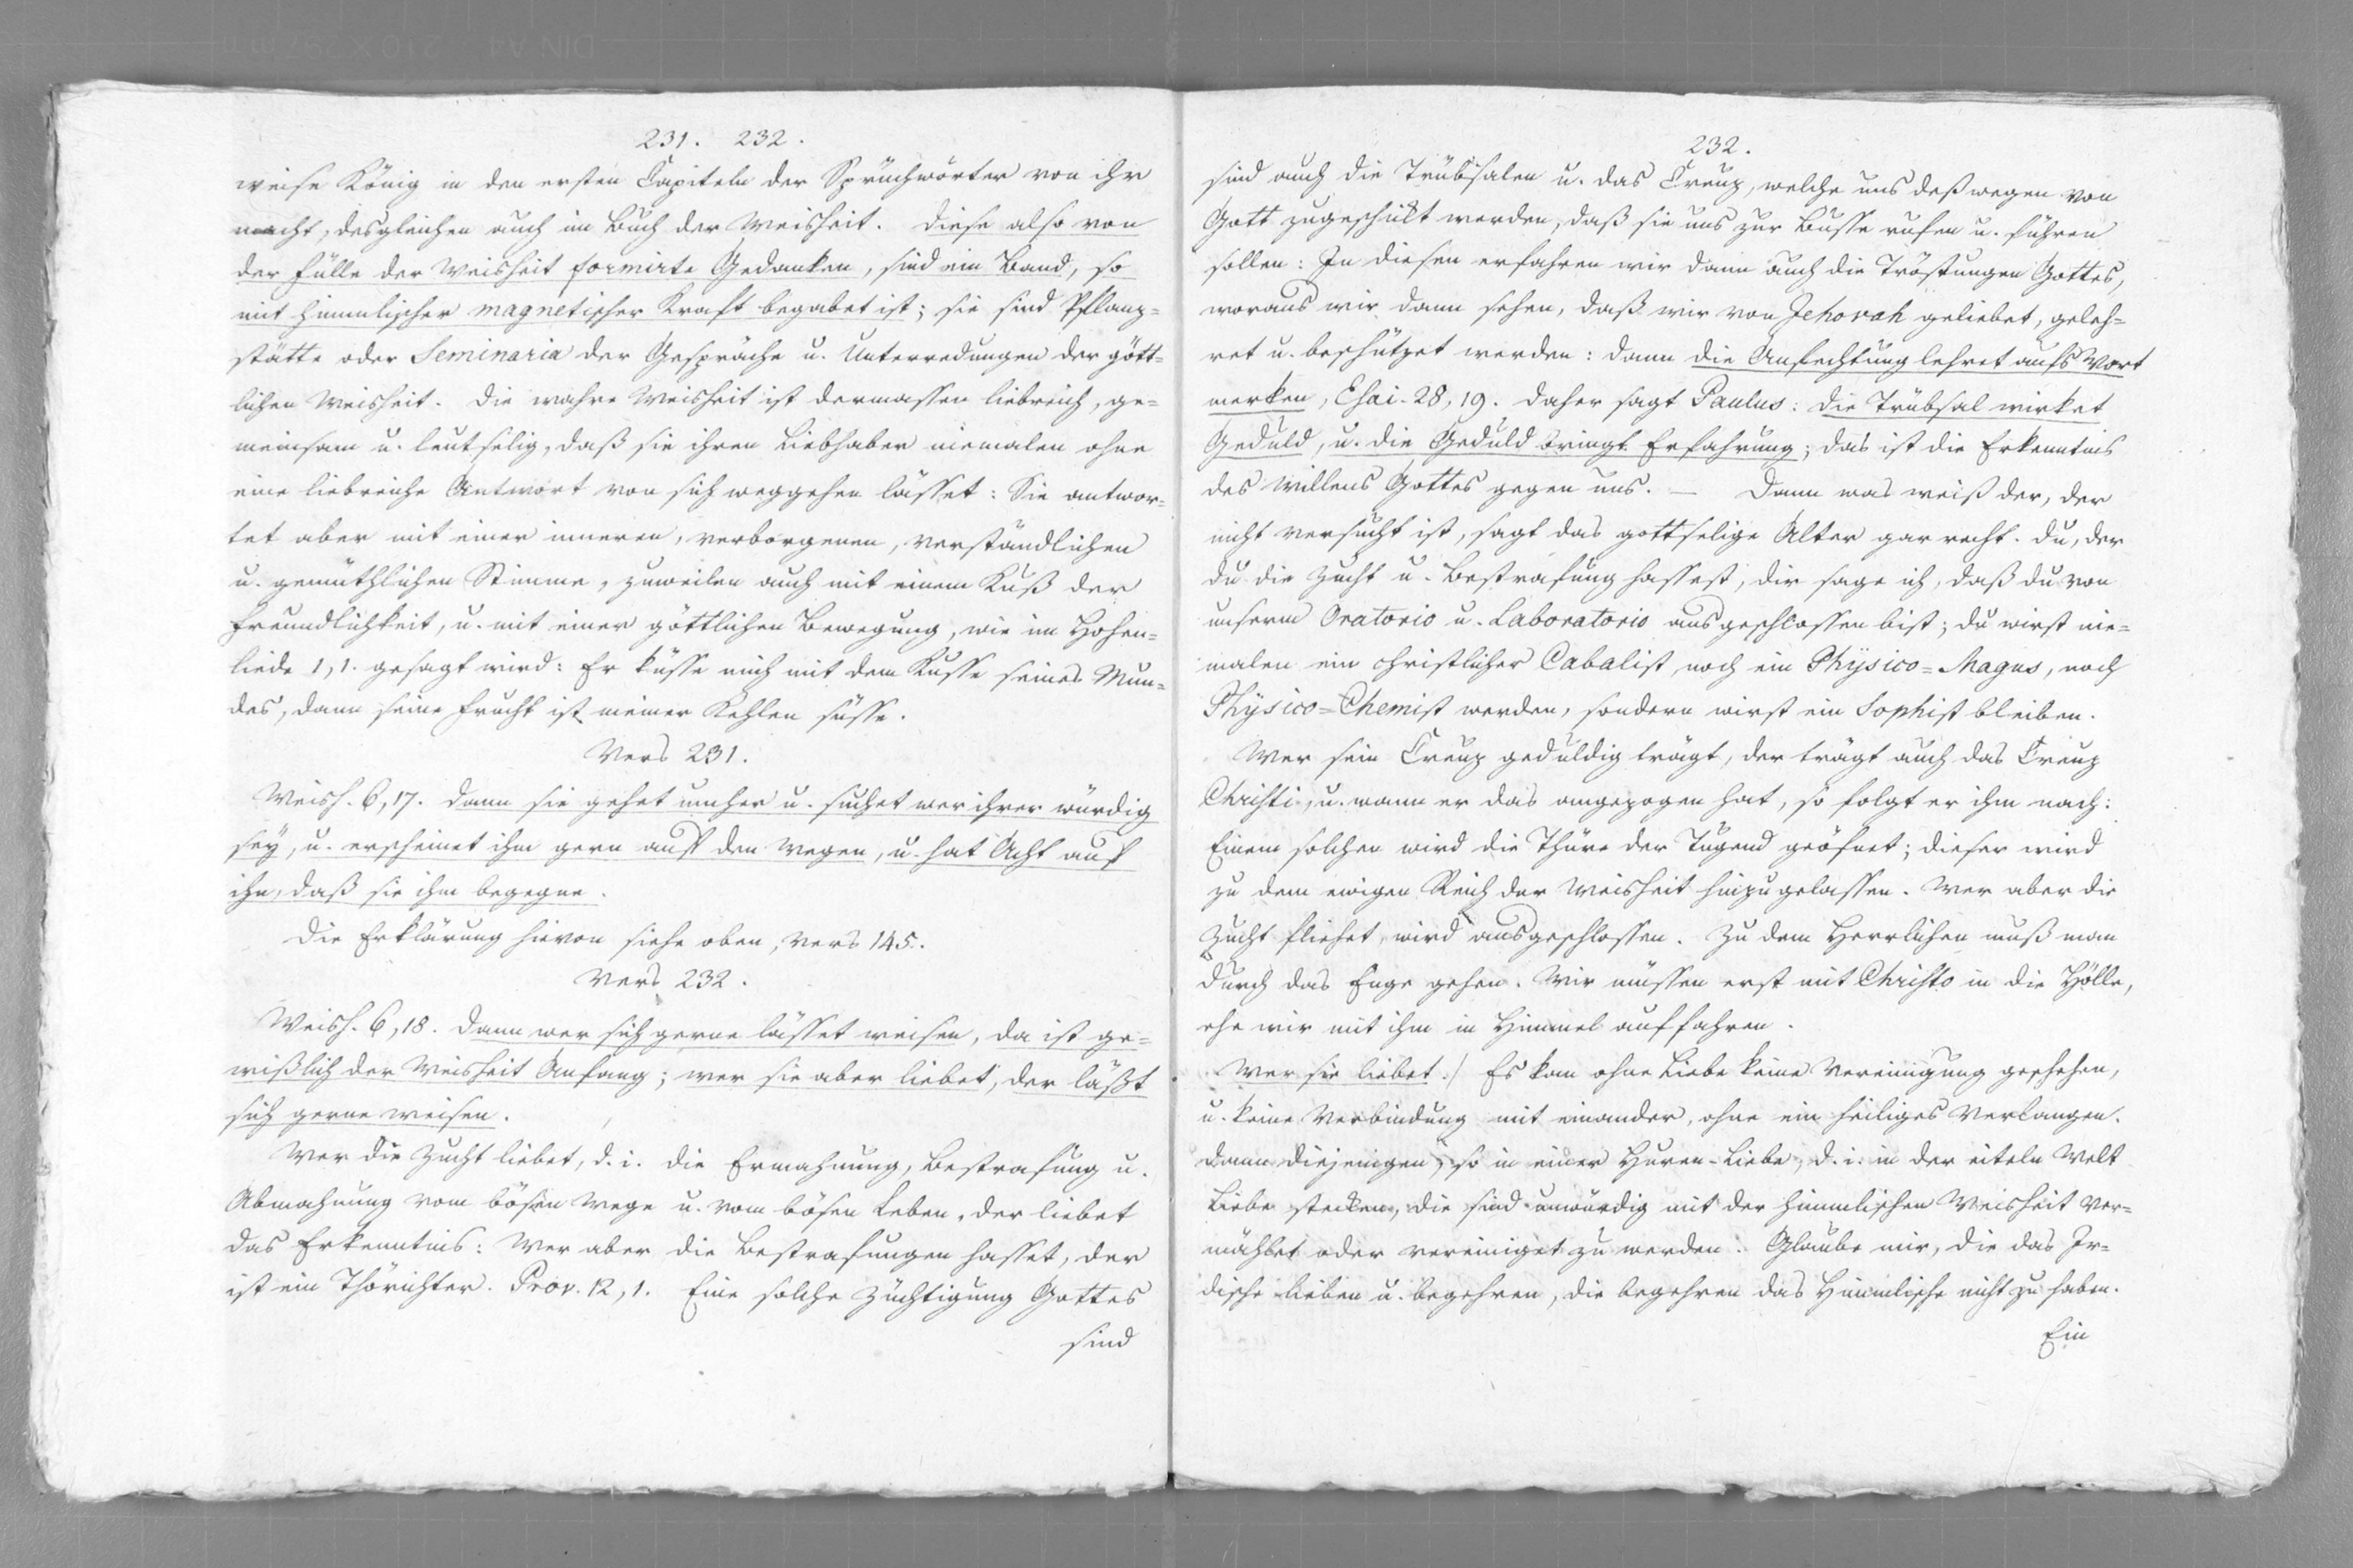 231. 232.
weise König in den ersten Capiteln der Sprüchwörter von ihr
macht, desgleichen auch im Buch der Weisheit. Diese also von
der Fülle der Weisheit formirte Gedanken, sind ein Band, so
mit himmlischer magnetischer Kraft begabet ist; sie sind Pflanz=
stätte oder Seminaria der Gespräche u. Unterredungen der gött=
lichen Weisheit. Die wahre Weisheit ist dermassen liebreich, ge=
meinsam u. leutselig, daß sie ihren Liebhaber niemalen ohne
eine liebreiche Antwort von sich weggehen lässet: Sie antwor=
tet aber mit einer inneren, verborgenen, verständlichen
u. gemüthlichen Stimme, zuweilen auch mit einem Kuß der
Freundlichkeit, u. mit einer göttlichen Bewegung, wie im Hohen=
liede 1,1. gesagt wird: Er küsse mich mit dem Kusse seines Mun=
des, dann seine Frucht ist meiner Kehlen süsse.
Vers 231.
Weish. 6,17. Dann sie gehet umher u. suchet wer ihrer würdig
sey, u. erscheinet ihm gern auf den Wegen, u. hat Acht auf
ihn, daß sie ihm begegne.
Die Erklärung hievon siehe oben, Vers 145.
Vers 232.
Weish. 6,18. Dann wer sich gerne lässet weisen, da ist ge=
wißlich der Weisheit Anfang; wer sie aber liebet, der läßt
sich gerne weisen.
Wer die Zucht liebet, d. i. die Ermahnung, Bestrafung u.
Abmahnung vom bösen Wege u. vom bösen Leben, der liebet
das Erkenntnis: Wer aber die Bestrafungen hasset, der
ist ein Thörichter. Prov. 12, 1. Eine solche Züchtigung Gottes
sind
232.
sind auch die Trübsalen u. das Creuz, welche uns deßwegen von
Gott zugeschikt werden, daß sie uns zur Busse rufen u. führen
sollen: In diesen erfahren wir dann auch die Tröstungen Gottes,
woraus wir dann sehen, daß wir von Jehovah geliebet, geleh=
ret u. beschützet werden: dann die Anfechtung lehret aufs Wort
merken, Esai. 28, 19. Daher sagt Paulus: Die Trübsal wirket
Geduld, u. die Geduld bringt Erfahrung; das ist die Erkenntnis
des Willens Gottes gegen uns. — Dann was weiß der, der
nicht versucht ist, sagt das gottselige Alter gar recht. Du, der
du die Zucht u. Bestrafung hassest, dir sage ich, daß du von
unserm Oratorio u. Laboratorio ausgeschlossen bist; du wirst nie=
malen ein christlicher Cabalist, noch ein Physico=Magus, noch
Physico=Chemist werden, sondern wirst ein Sophist bleiben.
Wer sein Creuz geduldig trägt, der trägt auch das Creuz
Christi, u. wann er das angezogen hat, so folgt er ihm nach:
Einem solchen wird die Thüre der Tugend geöfnet; dieser wird
zu dem ewigen Reich der Weisheit hinzugelassen. Wer aber die
Zucht fliehet, wird ausgeschlossen. Zu dem Herrlichen muß man
durch das Enge gehen. Wir müssen erst mit Christo in die Hölle,
ehe wir mit ihm in Himmel auffahren.
Wer sie liebet./ Es kan ohne Liebe keine Vereinigung geschehen,
u. keine Verbindung mit einander, ohne ein heiliges Verlangen.
Dann diejenigen, so in einer Huren-Liebe, d. i. in der eiteln Welt
Liebe stecken, die sind unwürdig mit der himmlischen Weisheit ver=
mählet oder vereiniget zu werden. Glaube mir, die das Ir=
dische lieben u. begehren, die begehren das Himmlische nicht zu haben.
Ein